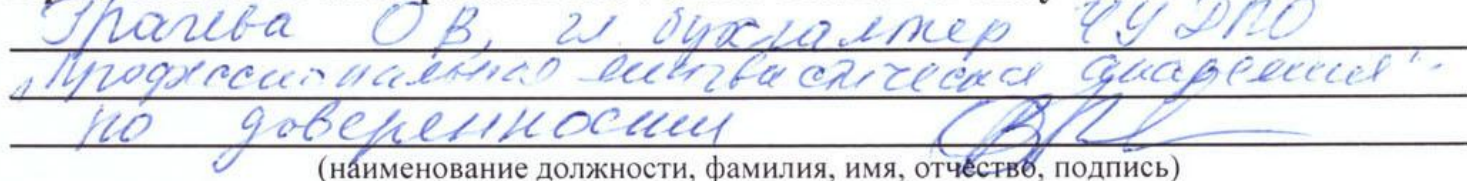 Грачева О В, гл. бухгалтер ЧУ ДПО
"Профессиональная лингвистическая академия"-
по доверенности
(наименование должности, фамилия, имя, отчество, подпись)